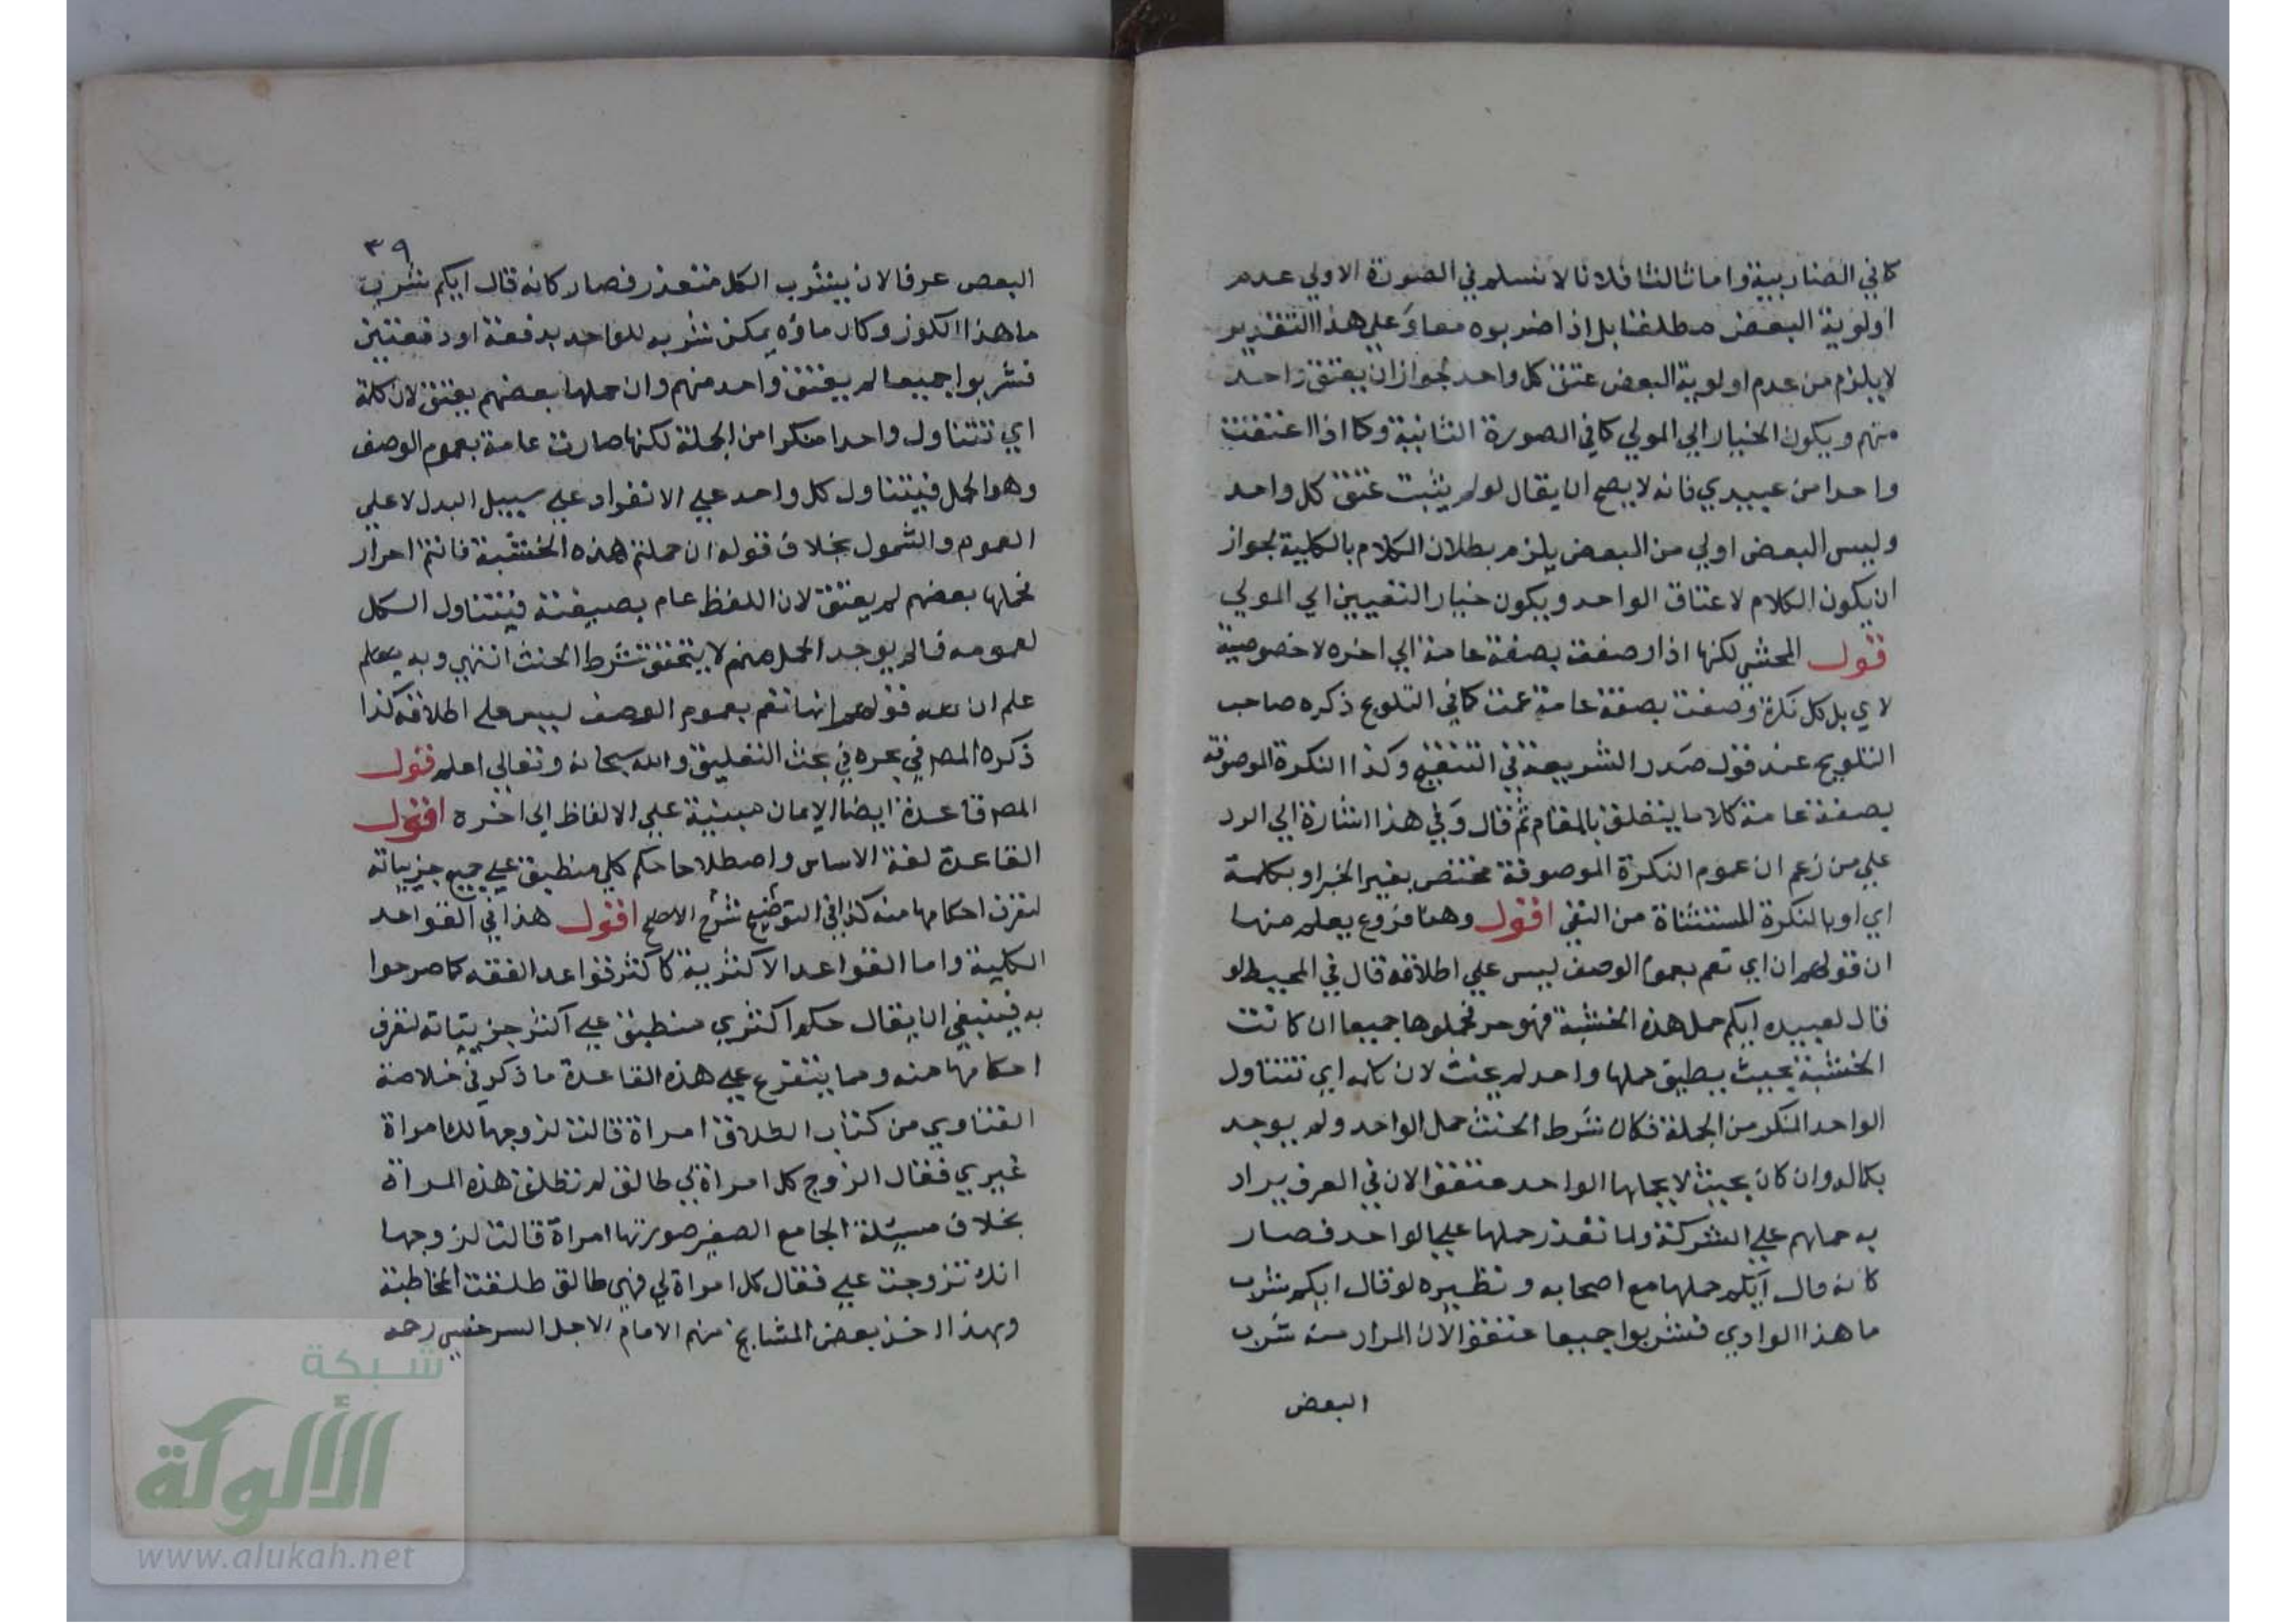 كما في الضاربية واما ثالثا فلانا لا نسلم في الصورة الاولي عدم
اولوية البعض مطلقا بل اذا ضربوه معا وعلي هذا التقدير
لا يلزم من عدم اولوية البعض عتق كل واحد لجواز ان يعتق واحد
منهم ويكون الخيار الي المولي كما في الصورة الثانية وكما اذا اعتقت
واحدا من عبيدي فانه لا يصح ان يقال لو لم يثبت عتق كل واحد
وليس البعض اولي من البعض يلزم بطلان الكلام بالكلية لجواز
ان يكون الكلام لاعتاق الواحد ويكون خيار التعيين الي المولي
قول المحشي لكنها اذا وصفت بصفة عامة الي اخره لا خصوصية
لاي بل كل نكرة وصفت بصفة عامة عمت كما في التلويح ذكره صاحب
التلويح عند قول صدر الشريعة في التنقيح وكذا النكرة الموصوفة
بصفة عامة كلاما يتعلق بالمقام ثم قال وفي هذا اشارة الي الرد
علي من زعم ان عموم النكرة الموصوفة مختص بغير الخبر او بكلمة
اي او بالنكرة المستثناة من النفي اقول وهنا فروع يعلم منها
ان قولهم ان اي تعم بعموم الوصف ليس علي اطلاقه قال في المحيط لو
قال لعبيده ايكم حمل هذه الخشبة فهو حر فحملوها جميعا ان كانت
الخشبة بحيث يطيق حملها واحد لم يحنث لان كلمه اي تتناول
الواحد المنكر من الجملة فكان شرط الحنث حمل الواحد ولم يوجد
بكماله وان كان بحيث لا يحملها الواحد عتقوا لان في العرف يراد
به حملهم علي الشركة ولما تعذر حملها علي الواحد فصار
كانه قال ايكم حملها مع اصحابه ونظيره لو قال ايكم شرب
ما هذا الوادي فشربوا جميعا عتقوا لان المراد منه شرب
البعض
٣٩
البعض عرفا لان يشرب الكل متعذر فصار كانه قال ايكم شرب
ما هذا الكوز وكان ماؤه يمكن شربه للواحد بدفعة او دفعتين
فشربوا جميعا لم يعتق واحد منهم وان حملها بعضهم يعتق لان كلمة
اي تتناول واحدا منكرا من الجملة لكنها صارت عامة بعموم الوصف
وهو الحمل فيتناول كل واحد علي الانفراد علي سبيل البدل لا علي
العموم والشمول بخلاف قوله ان حملتم هذه الخشبة فانتم احرار
فحملها بعضهم لم يعتق لان اللفظ عام بصيغته فيتناول الكل
لعمومه فما لم يوجد الحمل منهم لا يتحقق شرط الحنث انتهي وبه يعلم
علم ان قولهم انها تعم بعموم الوصف ليس علي اطلاقه كذا
ذكره المص في بحره في بحث التعليق والله سبحانه وتعالي اعلم قول
المص قاعدة ايضا الايمان مبنية علي الالفاظ الي اخره اقول
القاعدة لغة الاساس واصطلاحا حكم كلي منطبق علي جميع جزيياته
لتعرف احكامها منه كذا في التوضيح شرح الاصلح اقول هذا في القواعد
الكلية واما القواعد الاكثرية كاكثر قواعد الفقه كما صرحوا
به فينبغي ان يقال حكم اكثري منطبق علي اكثر جزيئاته لتعرف
احكامها منه ومما يتفرع علي هذه القاعدة ما ذكر في خلاصة
الفتاوي من كتاب الطلاق امراة قالت لزوجها لك امراة
غيري فقال الزوج كل امراة لي طالق لم تطلق هذه المراة
بخلاف مسئلة الجامع الصغير صورتها امراة قالت لزوجها
انك تزوجت علي فقال كل امراة لي فهي طالق طلقت المخاطبة
وبهذا اخذ بعض المشايخ منهم الامام الاجل السرخسي رحمه
شبكة
الألوكة
www.alukah.net